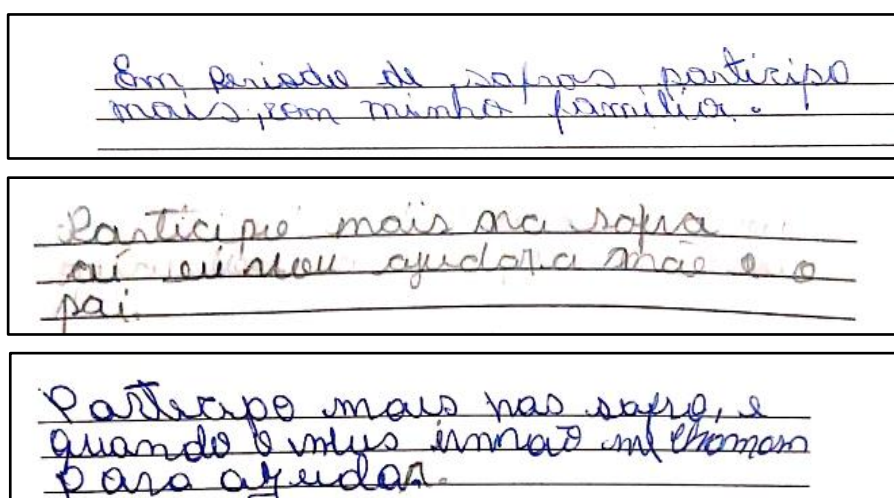 Em periodo de safras participo
mais, com minha familia.
Participo mais na safra
aí eu vou ajudar a mãe e o
pai.
Participo mais nas safra, e
quando o meus irmão me chamam
para ajudar.